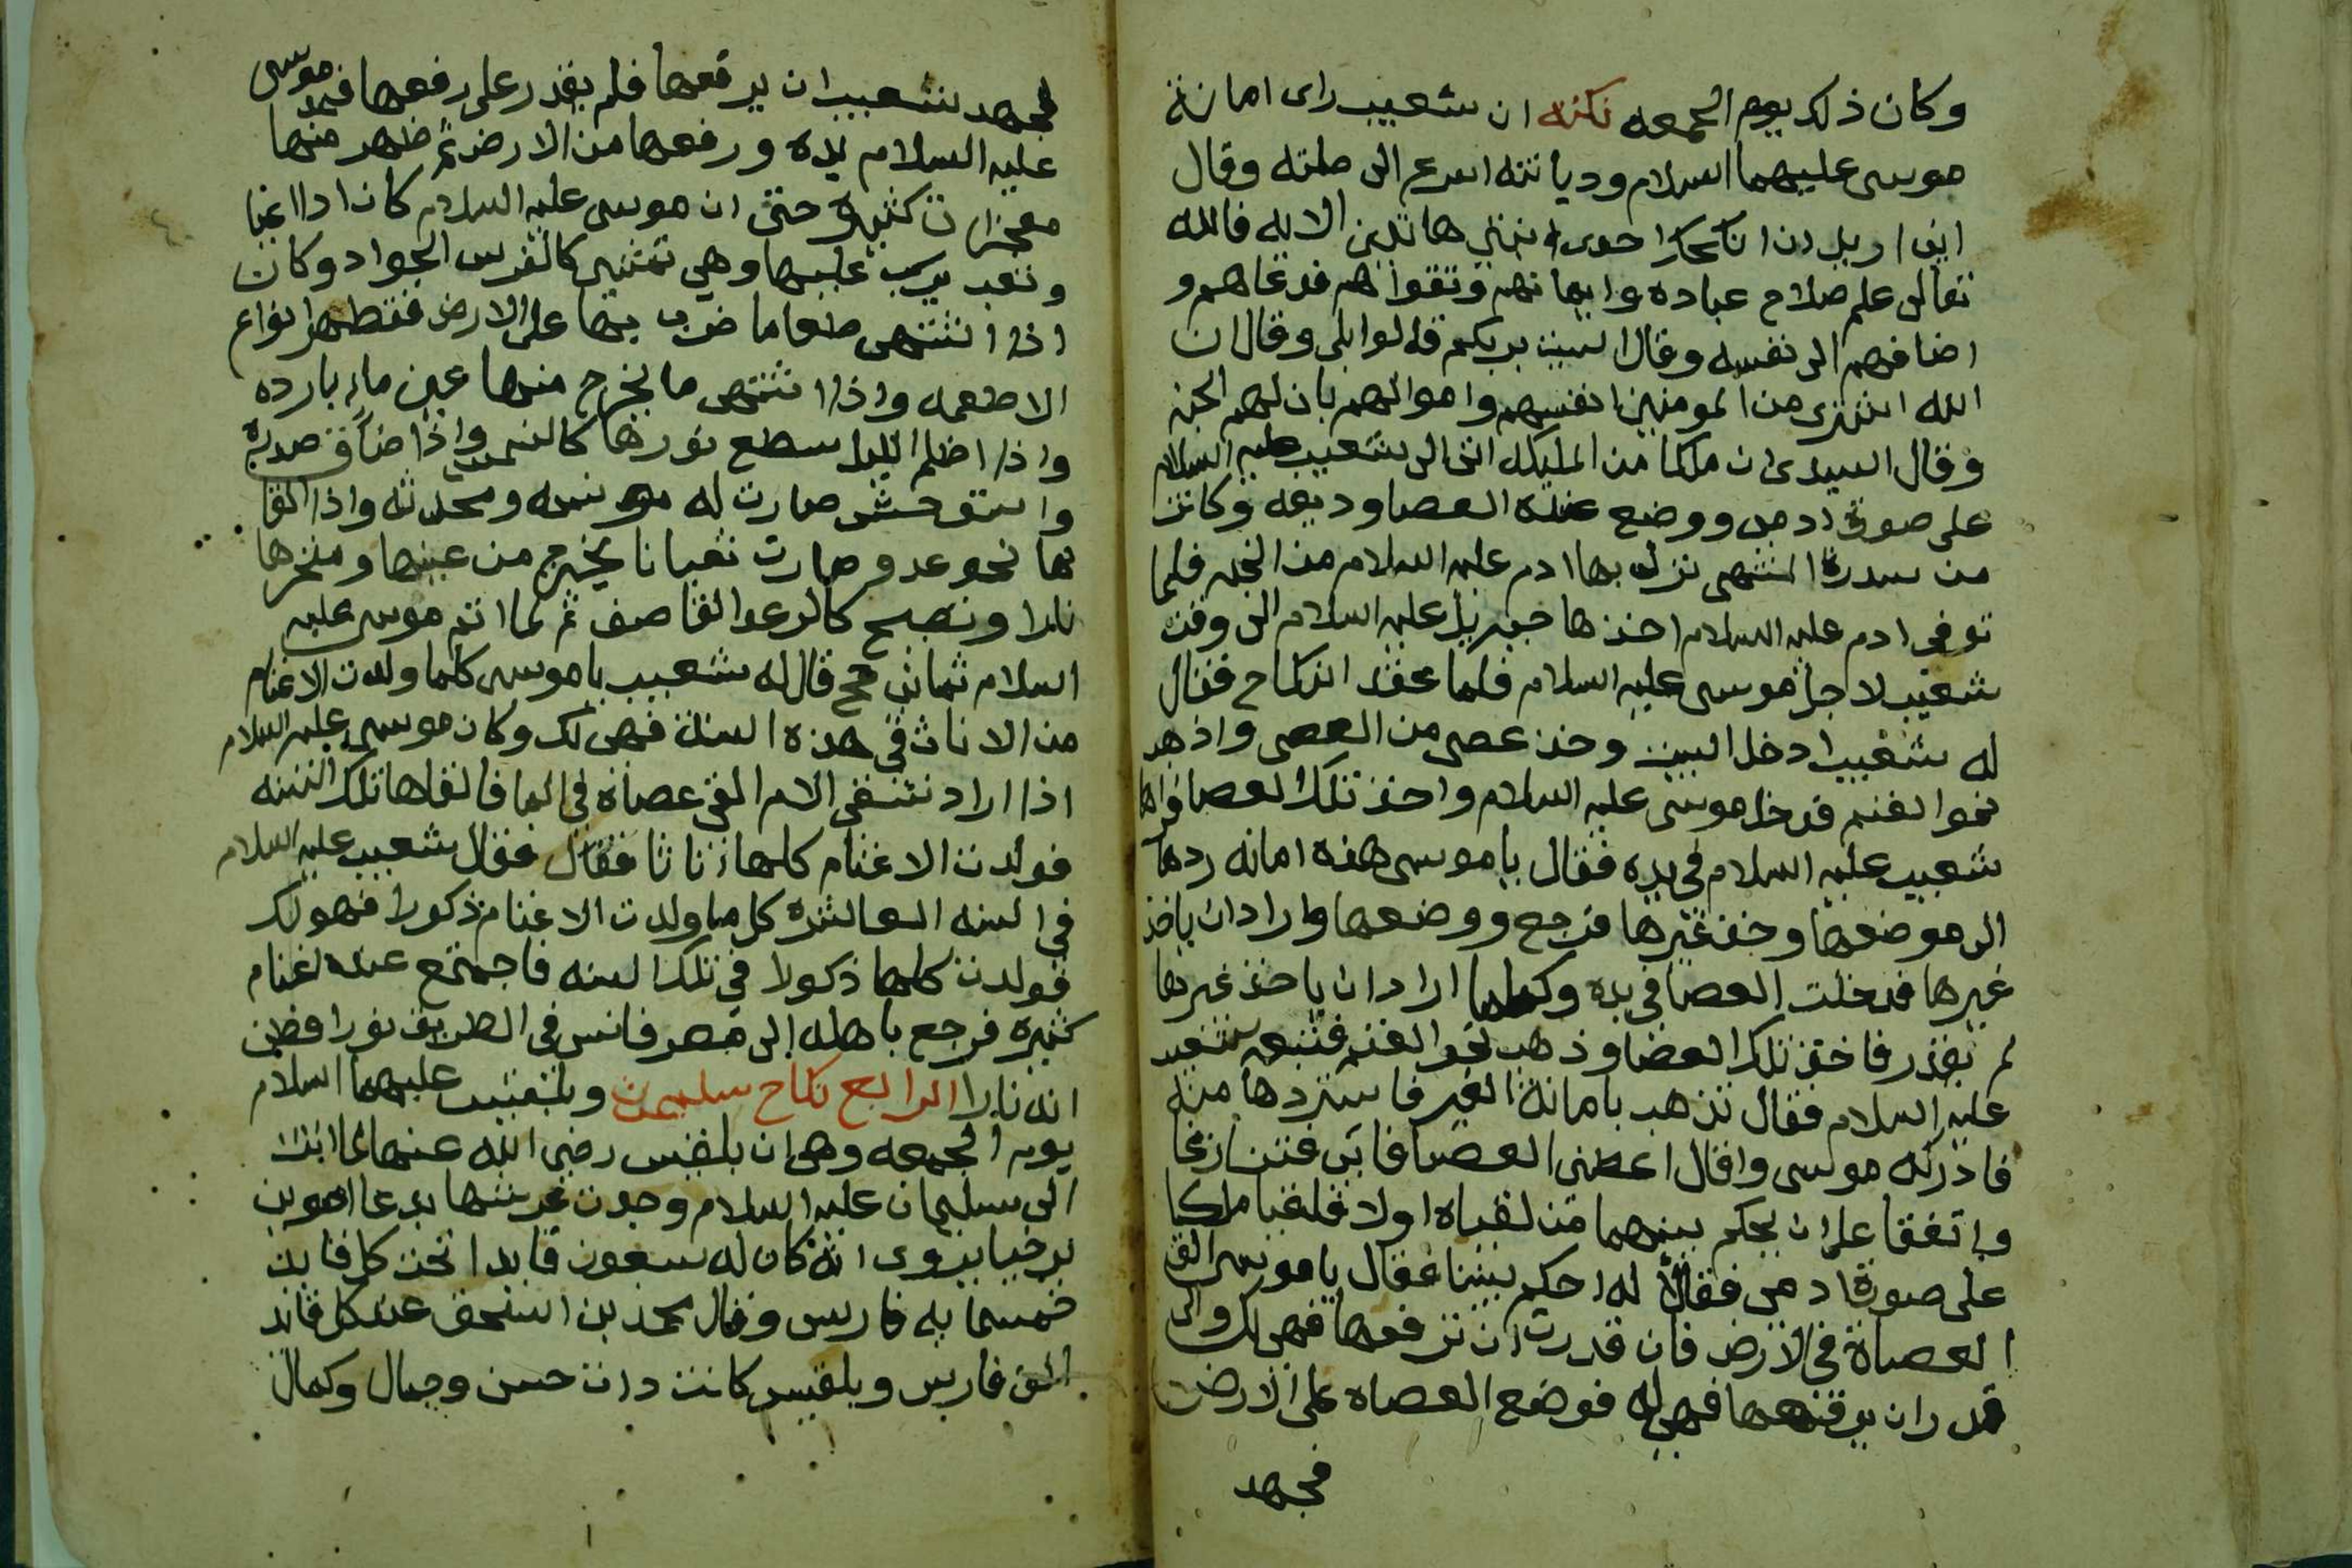 وكان ذلك يوم الجمعه نكته ان شعيب راى امانة
موسى عليهما السلام وديانته اسرع الى صلته وقال
انى اريد ان انكحك احدى ابنتي هاتين الايه فالله
تعالى علم صلاح عباده وايمانهم وتقواهم فدعاهم و
اضافهم الى نفسه وقال الست بربكم قالوا بلى وقال ان
الله اشترى من المومنين انفسهم واموالهم بان لهم الجنه
وقال السدى ان ملكا من المليكه اتى الى شعيب عليه السلام
على صورة ادمى ووضع عنده العصا وديعه وكانت
من سدرة المنتهى نزل بها ادم عليه السلام من الجنه فلما
توفى ادم عليه السلام اخذها جبريل عليه السلام الى وقت
شعيب لاجل موسى عليه السلام فلما عقد النكاح فقال
له شعيب ادخل البيت وخذ عصى من العصى واذهب
نحو الغنم فدخل موسى عليه السلام واخذ تلك العصا فراها
شعيب عليه السلام في يده فقال يا موسى هذه امانه ردها
الى موضعها وخذ غيرها فرجع ووضعها واراد ان ياخذ
غيرها فدخلت العصا في يده وكلما اراد ان ياخذ غيرها
لم يقدر فاخذ تلك العصا وذهب نحو الغنم فتبعه شعيب
عليه السلام فقال تذهب بامانة الغير فاستردها منه
فادركه موسى وقال اعطنى العصا فابى فتنازعا
واتفقا على ان يحكم بينهما من لقياه اولا فلقيا ملكا
على صورة ادمى فقالا له احكم بيننا فقال يا موسى الق
العصاة في الارض فان قدرت ان ترفعها فهي لك وان
قدر ان يرفعها فهي له فوضع العصاه على الارض
فجهد
فجهد شعيب ان يرفعها فلم يقدر على رفعها فمد موسى
عليه السلام يده ورفعها من الارض ثم ظهر منها
معجزات كثيرة حتى ان موسى عليه السلام كان اذا اعيا
وتعب يركب عليها وهي تمشي كالفرس الجواد وكان
اذا اشتهى طعاما ضرب بها على الارض فتظهر انواع
الاطعمه واذا اشتهى ما يخرج منها عين ماء بارده
واذا اظلم الليل سطع نورها كالشمس واذا ضاق صدره
واستوحش صارت له مونسه ومحدثه واذا القا
ها نحو عدو صارت ثعبانا يخرج من عينها ومنخرها
نارا وتصيح كالرعد القاصف ثم لما اتم موسى عليه
السلام ثمانى حجج قال له شعيب يا موسى كلما ولدت الاغنام
من الاناث في هذه السنة فهي لك وكان موسى عليه السلام
اذا اراد تسقى الاما القى عصاه في الما فالقاها تلك السنه
فولدت الاغنام كلها اناثا فقال فقال شعيب عليه السلام
في السنه العاشره كل ما ولدت الاغنام ذكورا فهو لك
فولدت كلها ذكورا في تلك السنه فاجتمع عنده اغنام
كثيره فرجع باهله الى مصر فانس في الطريق نورا فظن
انه نارا الرابع نكاح سليمان وبلقيس عليهما السلام
يوم الجمعه وهي ان بلقيس رضي الله عنها لما اتت
الى سليمان عليه السلام وجدت عرشها
برخيا يروى انه كان له سبعون قايدا تحت كل قايد
خمسمايه فارس وقال محمد بن اسحق عند كل قايد
الف فارس وبلقيس كانت ذات حسن وجمال وكمال